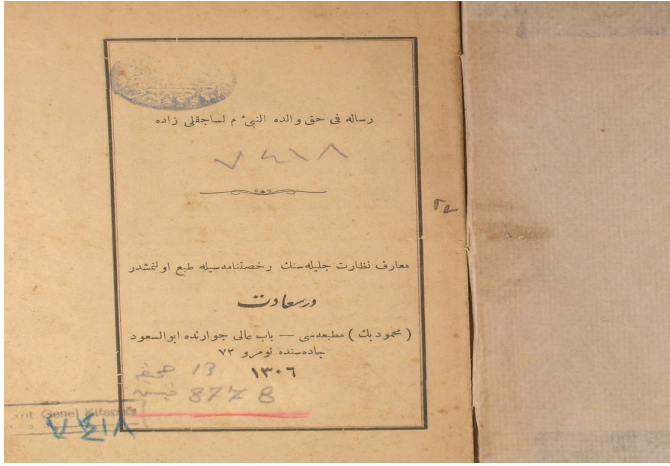 رساله فى حق والده النبىء م لساجقلى زاده
٧٤١٨
معارف نظارت جليله‌سنك رخصتنامه‌سيله طبع اولنمشدر
درسعادت
( محمود بك ) مطبعه‌سى — باب عالى جوارنده ابوالسعود
جاده‌سنده نومرو ٧٢
١٣٠٦
13
877 B
Genel Kitap
٧٤١٨